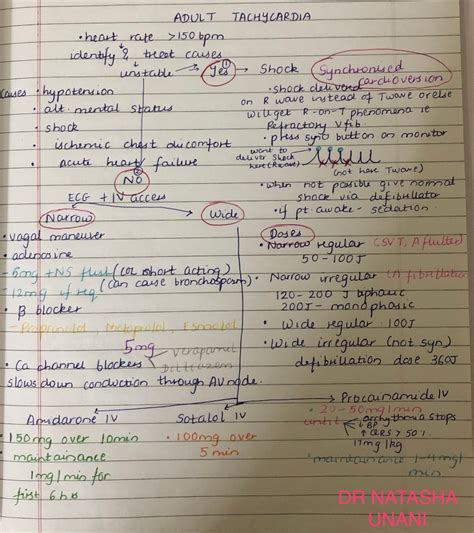 ADULT TACHYCARDIA
• heart rate >150 bpm
identify & treat causes
unstable → Yes → Shock Synchronised cardioversion
causes • hypotension
• alt. mental status
• shock
• ischemic chest discomfort
• acute heart failure
• shock delivered
on R wave instead of T wave or else
will get R-on-T phenomena ie
Refractory Vfib.
• press sync button on monitor
want to
deliver shock
here (R wave)
(not here T wave)
• when not possible give normal
shock via defibrillator
• if pt awake - sedation.
NO
ECG + IV access
Narrow
Wide
• vagal maneuver
• adenosine
- 6mg + NS flush (coz short acting)
- 12mg if req (can cause bronchospasm)
• β blocker
- Propranolol, Metoprolol, Esmolol
5mg
• Ca channel blockers
Verapamil
Diltiazem
slows down conduction through AV node.
Doses
• Narrow regular (SVT, A flutter)
50-100J
• Narrow irregular (A fibrillation)
120-200 J biphasic
200J - monophasic
• Wide regular : 100J
• Wide irregular (not syn)
defibrillation dose 360J
Amidarone IV
• 150mg over 10min
• maintainance
1mg/min for
first 6hs
Sotalol IV
• 100mg over
5 min
Procainamide IV
• 20-50mg/min
until
arrhythmia stops
↓ BP
↑ QRS > 50%
17mg/kg
• maintainance 1-4mg/
min
DR NATASHA
UNANI